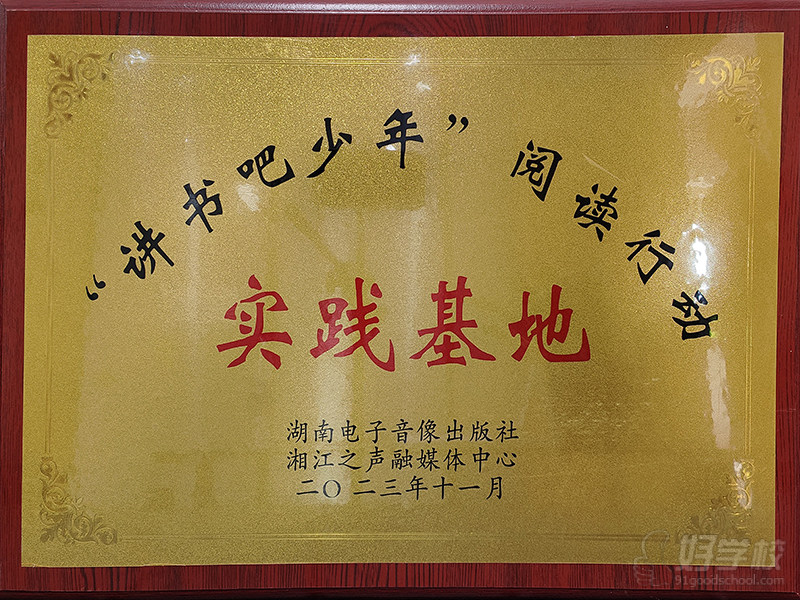 “讲书吧少年”阅读行动
实践基地
湖南电子音像出版社
湘江之声融媒体中心
二〇二三年十一月
好学校
91goodschool.com